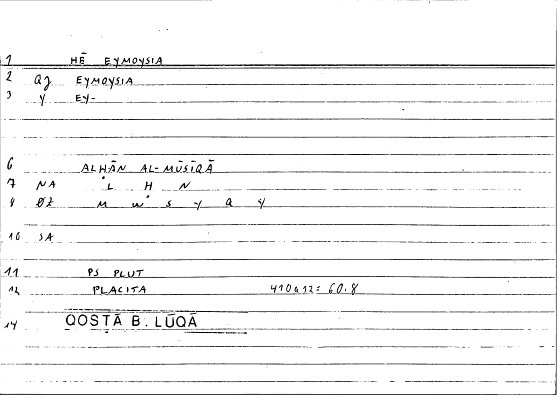 1 HĒ EYMOYSIA
2 QJ EYMOYSIA
3 Y EY-
6 ALḤĀN AL-MŪSĪQĀ
7 NA L Ḥ N
8 ØZ M W S Y Q Y
10 SA
11 PS PLUT
12 PLACITA 410a12= 60.8
14 QOSṬĀ B. LŪQĀ